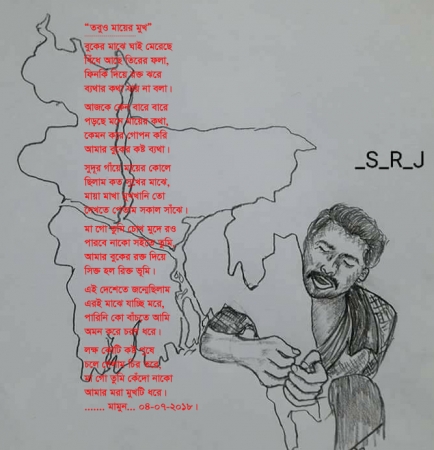 “তবুও মায়ের মুখ”
বুকের মাঝে ঘাই মেরেছে
বিঁধে আছে তিরের ফলা,
ফিনকি দিয়ে রক্ত ঝরে
ব্যথার কথা যায় না বলা।
আজকে কেন বারে বারে
পড়ছে মনে মায়ের কথা,
কেমন করে গোপন করি
আমার বুকের কষ্ট ব্যথা।
সুদূর গাঁয়ে মায়ের কোলে
ছিলাম কত সুখের মাঝে,
মায়া মাখা মুখখানি তো
দেখতে পেতাম সকাল সাঁঝে।
মা গো তুমি চোখ মুদে রও
পারবে নাকো সইতে তুমি
আমার বুকের রক্ত দিয়ে
সিক্ত হল রিক্ত ভূমি।
এই দেশেতে জন্মেছিলাম
এরই মাঝে যাচ্ছি মরে,
পারিনি কো বাঁচতে আমি
অমন করে চরণ ধরে।
লক্ষ কোটি কষ্ট পুষে
চলে গেলাম চির তরে,
মা গো তুমি কেঁদো নাকো
আমার মরা মুখটি ধরে।
....... মামুন... ০৪-০৭-২০১৮।
_S_R_J